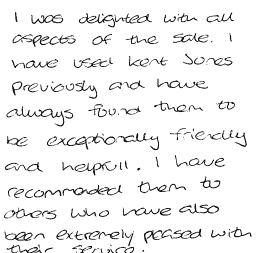 I was delighted with all
aspects of the sale. I
have used Kent Jones
previously and have
always found them to
be exceptionally friendly
and helpfull. I have
recommended them to
others who have also
been extremely pleased with
their service.